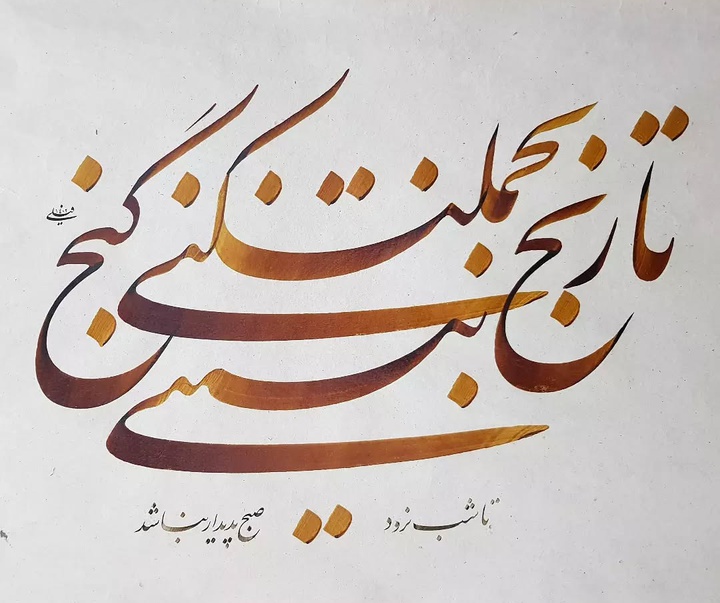 تا رنج تحمل نکنی گنج نبینی
تا شب نرود صبح پدیدار نباشد